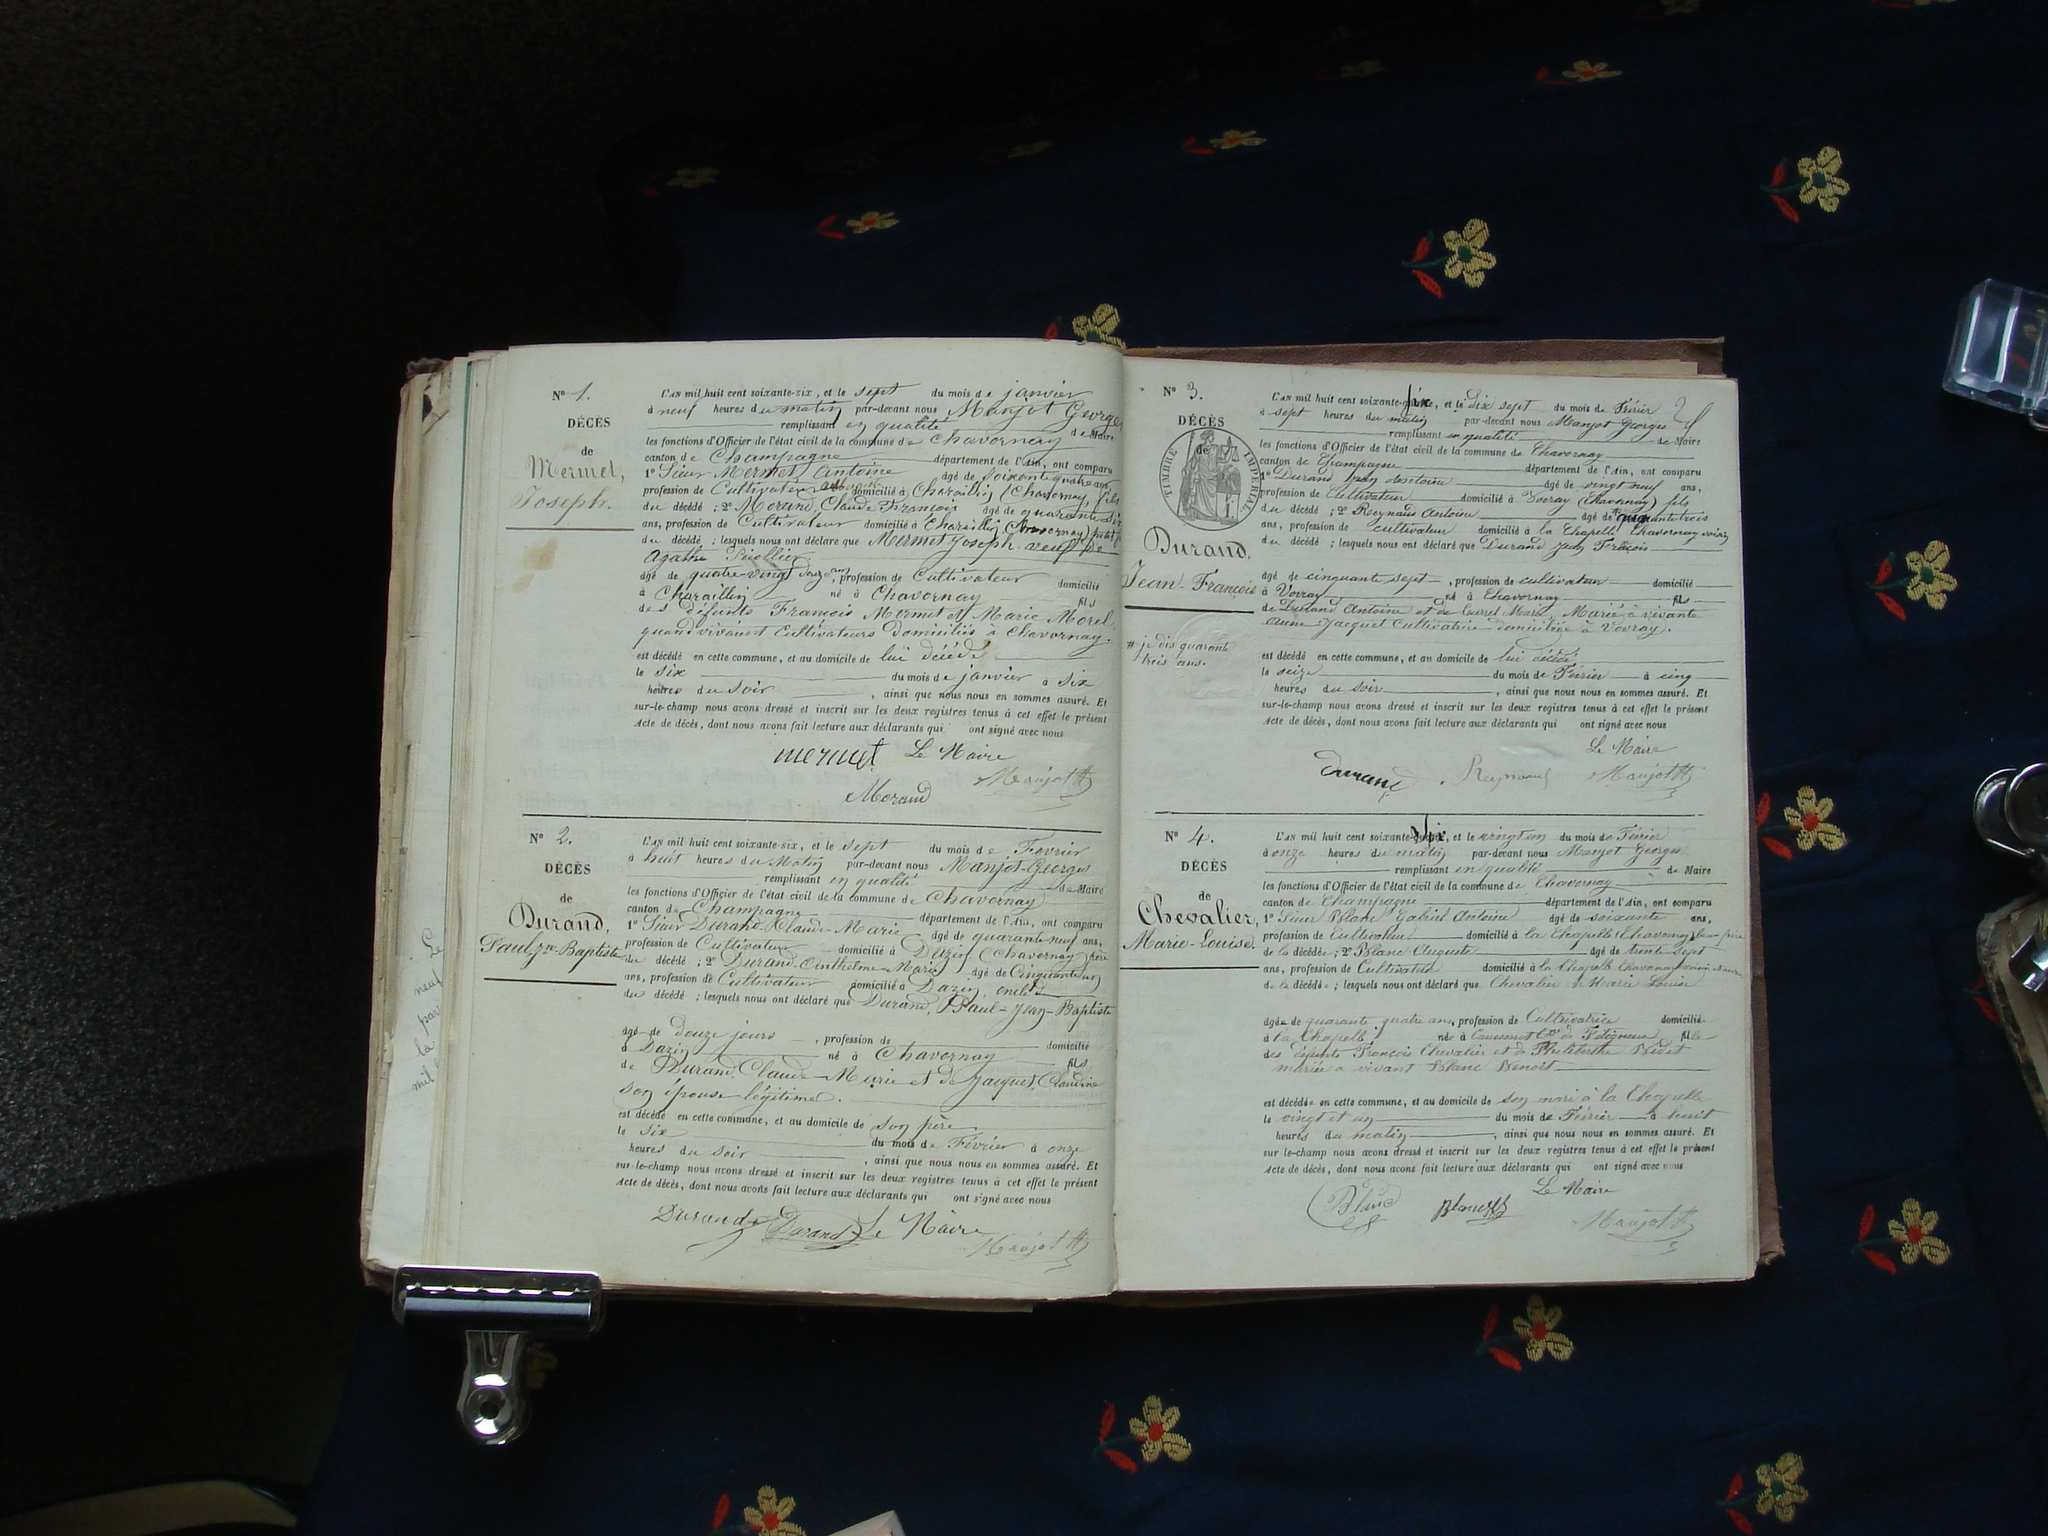 N° 1.
DÉCÈS
de
Mermet,
Joseph.
L'AN mil huit cent soixante-six, et le sept du mois de janvier
à neuf heures du matin par-devant nous Manjot Georges
remplissant en qualité de Maire
les fonctions d'Officier de l'état civil de la commune de Chavornay
canton de Champagne département de l'Ain, ont comparu
1° Sieur Mermet Antoine âgé de soixante quatre ans,
profession de Cultivateur domicilié à Charaillin (Chavornay) fils
du décédé ; 2° Morand Claude François âgé de quarante six
ans, profession de Cultivateur domicilié à Charaillin (Chavornay)
du décédé ; lesquels nous ont déclaré que Mermet Joseph veuf de
Agathe
âgé de quatre-vingt douze ans, profession de Cultivateur domicilié
à Charaillin né à Chavornay fils
des défunts François Mermet et Marie Morel
quand vivaient Cultivateurs domiciliés à Chavornay.
est décédé en cette commune, et au domicile de lui décédé
le six du mois de janvier à six
heures du soir, ainsi que nous nous en sommes assuré. Et
sur-le-champ nous avons dressé et inscrit sur les deux registres tenus à cet effet le présent
Acte de décès, dont nous avons fait lecture aux déclarants qui ont signé avec nous
mermet Le Maire
Morand Manjot
N° 2.
DÉCÈS
de
Durand,
Paul-Jn-Baptiste
L'AN mil huit cent soixante-six, et le sept du mois de Fevrier
à huit heures du Matin par-devant nous Manjot Georges
remplissant en qualité de Maire
les fonctions d'Officier de l'état civil de la commune de Chavornay
canton de Champagne département de l'Ain, ont comparu
1° Sieur Durand Claude-Marie âgé de quarante neuf ans,
profession de Cultivateur domicilié à Dazin (Chavornay) père
du décédé ; 2° Durand Anthelme Marie âgé de Cinquante un
ans, profession de Cultivateur domicilié à Dazin, oncle
du décédé ; lesquels nous ont déclaré que Durand, Paul-Jean-Baptiste
âgé de douze jours, profession de domicilié
à Dazin né à Chavornay fils
de Durand Claude-Marie et de Jacquet Claudine
son épouse légitime.
est décédé en cette commune, et au domicile de son père
le six du mois de Février à onze
heures du soir, ainsi que nous nous en sommes assuré. Et
sur-le-champ nous avons dressé et inscrit sur les deux registres tenus à cet effet le présent
Acte de décès, dont nous avons fait lecture aux déclarants qui ont signé avec nous
Durand Durand Le Maire
Manjot
N° 3.
DÉCÈS
de
TIMBRE IMPÉRIAL
Durand,
Jean-François
# je dis quarante
trois ans.
2
L'AN mil huit cent soixante-six, et le dix sept du mois de Février
à sept heures du matin par-devant nous Manjot Georges
remplissant en qualité de Maire
les fonctions d'Officier de l'état civil de la commune de Chavornay
canton de Champagne département de l'Ain, ont comparu
1° Durand Jean Antoine âgé de vingt neuf ans,
profession de Cultivateur domicilié à Vovray (Chavornay) fils
du décédé ; 2° Reynaud Antoine âgé de quarante trois
ans, profession de cultivateur domicilié à la Chapelle Chavornay voisin
du décédé ; lesquels nous ont déclaré que Durand Jean François
âgé de cinquante sept, profession de cultivateur domicilié
à Vovray né à Chavornay fils
de Durand Antoine et de Marie, Marié à vivante
Anne Jacquet Cultivatrice domiciliée à Vovray.
est décédé en cette commune, et au domicile de lui décédé
le seize du mois de Février à cinq
heures du soir, ainsi que nous nous en sommes assuré. Et
sur-le-champ nous avons dressé et inscrit sur les deux registres tenus à cet effet le présent
Acte de décès, dont nous avons fait lecture aux déclarants qui ont signé avec nous
Le Maire
Durand Reynaud Manjot
N° 4.
DÉCÈS
de
Chevalier,
Marie-Louise.
L'AN mil huit cent soixante-six, et le vingt un du mois de Février
à onze heures du matin par-devant nous Manjot Georges
remplissant en qualité de Maire
les fonctions d'Officier de l'état civil de la commune de Chavornay
canton de Champagne département de l'Ain, ont comparu
1° Sieur Blanc Gabriel Antoine âgé de soixante ans,
profession de Cultivateur domicilié à la Chapelle (Chavornay) beau-frère
de la décédée ; 2° Blanc Auguste âgé de trente sept
ans, profession de Cultivateur domicilié à la Chapelle Chavornay
de la décédée ; lesquels nous ont déclaré que Chevalier Marie Louise
âgée de quarante quatre ans, profession de Cultivatrice domiciliée
à la Chapelle née à fille
des défunts François Chevalier et de Philiberthe
mariée à vivant Blanc Benoit
est décédée en cette commune, et au domicile de son mari à la Chapelle
le vingt et un du mois de Février à huit
heures du matin, ainsi que nous nous en sommes assuré. Et
sur-le-champ nous avons dressé et inscrit sur les deux registres tenus à cet effet le présent
Acte de décès, dont nous avons fait lecture aux déclarants qui ont signé avec nous
Le Maire
Blanc Manjot